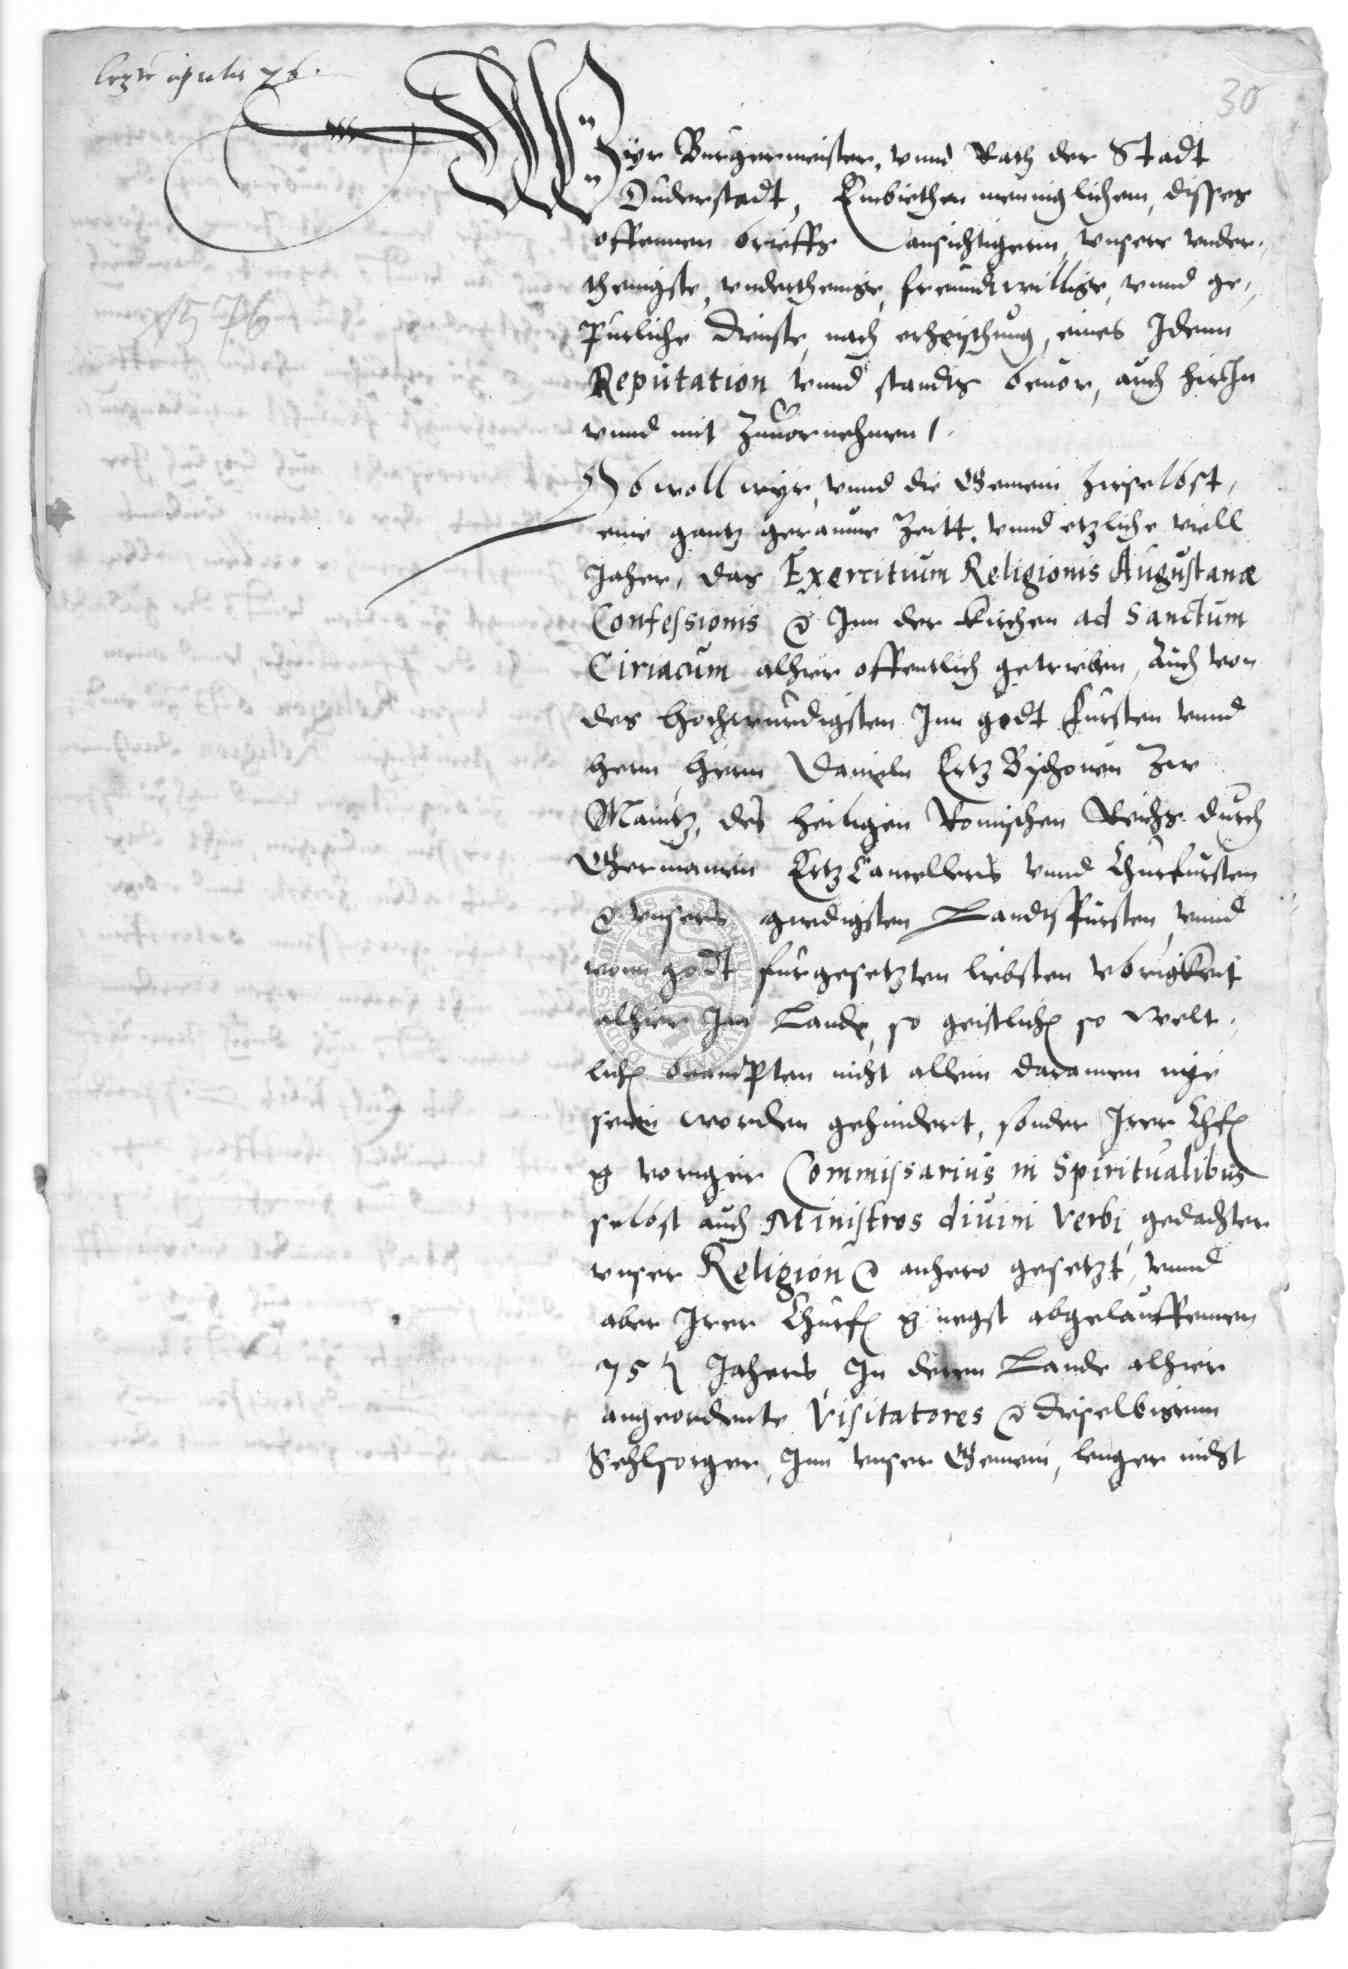 30
1576
Wyr Burgermeister, vnnd Rath der Stadt
Duderstadt, Embiethen menniglichem, disses
offennen brieffs ansichtigern, vnsere vnder-
thenigste, vnderthenige, freundtwillige, vnnd ge-
purliche dienste, nach erheischung, eines Idenn
Reputation vnnd standts beuor, auch hirIn
vnnd mit Zuuornehmen /.
Ob woll wyr, vnnd die Gemein hirselbst,
eine gantz geraume Zeitt, vnnd etzliche viell
Jaher, das Exercitium Religionis Augustanæ
Confessionis &c Inn der Kirchen ad Sanctum
Ciriacum alhier offentlich getrieben, Auch von
des hochwurdigsten Inn godt fursten vnnd
hern hern Danieln ErtzBischouen Zue
Maintz, des heiligen Romischen Reichs durch
Germanien ErtzCancellers vnnd Churfursten
&c vnsers gnedigsten Landtsfursten, vnnd
vonn godt furgesetzten liebsten vbrigkeit
alhier Im Lande, so geistlich so welt-
lich beampten nicht allein daramen nye
sein worden gehindert, sonder Irer Chf
g voriger Commissarius in Spiritualibus
selbst auch Ministros diuini verbi, gedachter
vnser Religion &c anhero gesetzt, vnnd
aber Irer Churf g negst abgelauffenen
75 Jahers, In deren Lande alhier
angeordente Visitatores &c dieselbigenn
Sehlsorger, Inn vnser Gemein, lenger nicht